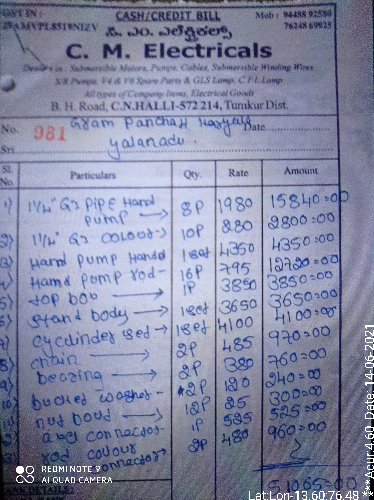 GST IN : CASH/CREDIT BILL Mob : 94488 92580
29AMVPL8519N1ZV 76248 69925
ಸಿ. ಎಂ. ಎಲೆಕ್ಟ್ರಿಕಲ್ಸ್
C. M. Electricals
Dealers in : Submersible Motors, Pumps, Cables, Submersible Winding Wires
S/R Pumps, V4 & V6 Spare Parts & GLS Lamp, C.F.L Lamp
All types of Company Items, Electrical Goods
B. H. Road, C.N.HALLI-572 214, Tumkur Dist.
No. 981 Date
Sri yalanadu.
Sl. No. Particulars Qty. Rate Amount
1) 1¼" GI PIPE Hand
pump → 8P 1980 15840=00
2) 1¼" GI 10P 280 2800=00
3) Hand pump 1set 4350 4350=00
4) Hand pump rod- 16P 795 12720=00
5) top → 1P 3850 3850=00
6) stand body → 1set 3650 3650=00
7) cyclinder set → 1set 4100 4100=00
8) chain → 2P 485 970=00
9) bearing → 2P 380 760=00
washer- 2P 120 240=00
12P 25 300=00
connector- 1P 525 525=00
rod 2P 480 960=00
connector-
51065=00
REDMI NOTE 9
AI QUAD CAMERA
Lat/Lon-13.60:76.48 ***Acur:4.60 Date: 14-06-2021